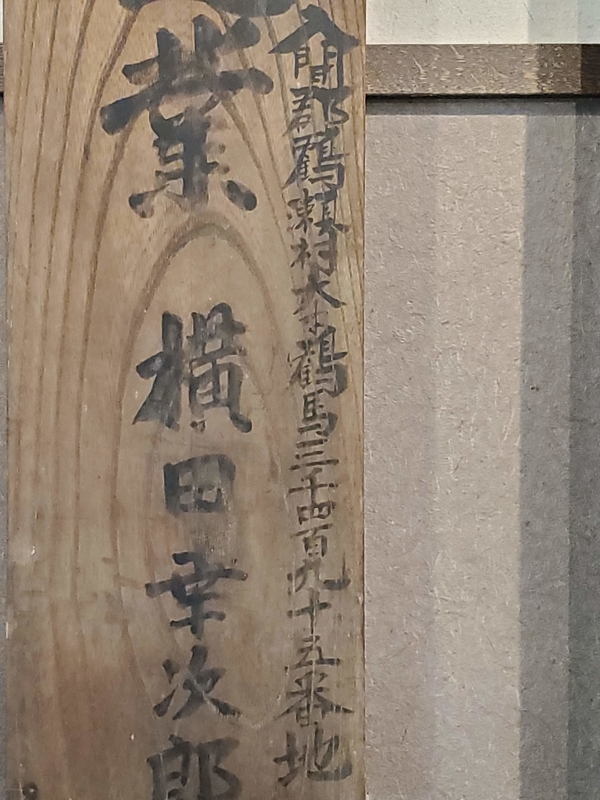 入間郡鶴瀬村大字鶴馬三千四百九十五番地
業 横田幸次郎